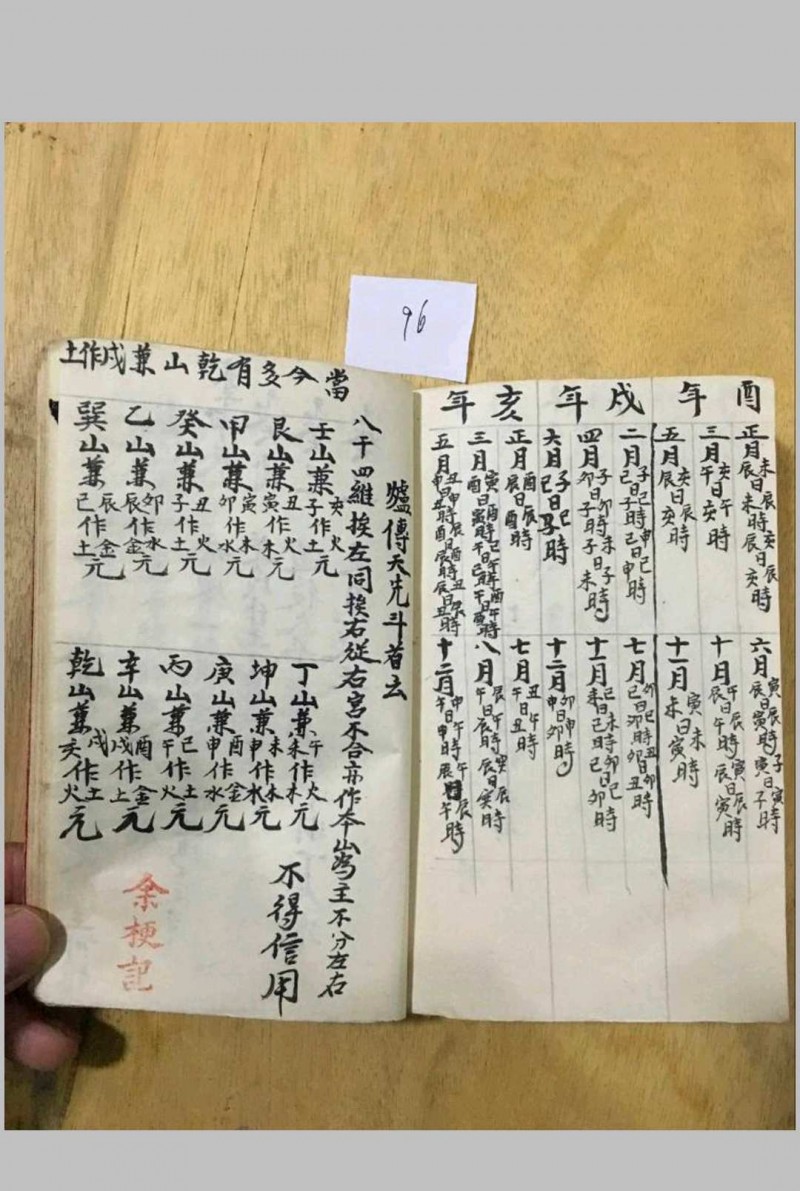 96
酉年
戌年
亥年
正月 未辰時亥辰
辰日未辰日亥時
三月 亥午
午日亥時
五月 亥辰
辰日亥時
六月 寅辰時子寅
辰日寅寅日子時
十月 午辰寅辰
辰日午時日寅時
十一月 寅未
未日寅時
二月 子巳申巳
巳日子時巳日申時
四月 子卯未子
卯日子時子日未時
六月 子巳
巳日子時
七月 卯巳丑卯
巳日卯時卯日丑時
十一月 巳未卯巳
未日巳時巳日卯時
十二月 卯申
申日卯時
正月 酉辰
辰日酉時
三月
五月
七月 丑午
午日丑時
八月
十二月
當今多有乾山兼戌作土
爐傳天先斗首去
八干四維挨左同挨右從右宮不合亦作本山為主不分左右
壬山兼亥子作火土元
艮山兼丑寅作火木元
甲山兼寅卯作木水元
癸山兼丑子作火土元
乙山兼卯辰作水金元
巽山兼辰巳作金土元
丁山兼午未作火木元
坤山兼未申作木水元
庚山兼酉申作金水元
丙山兼巳午作土火元
辛山兼酉戌作金土元
乾山兼戌亥作土火元
不得信用
余梗記